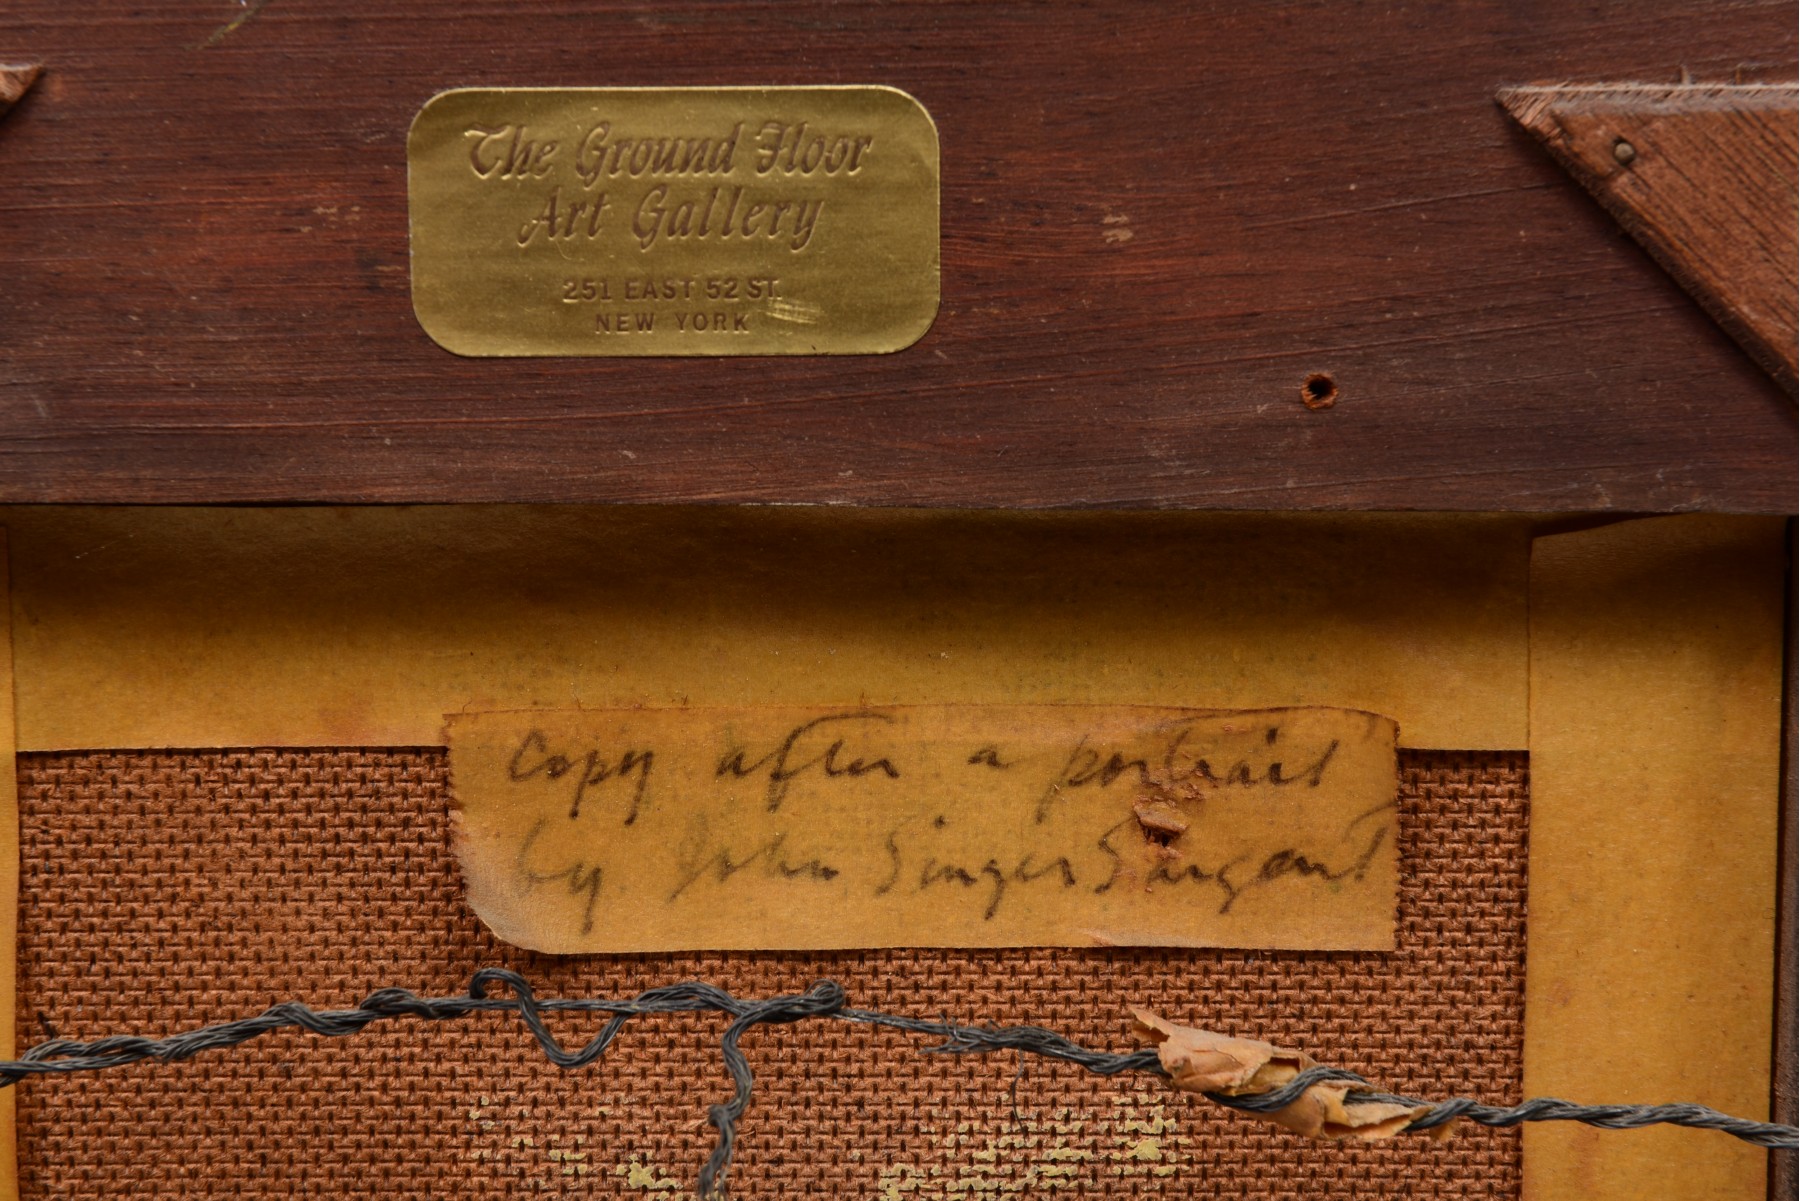 The Ground Floor
Art Gallery
251 EAST 52 ST.
NEW YORK
Copy after a portrait
by John Singer Sargent